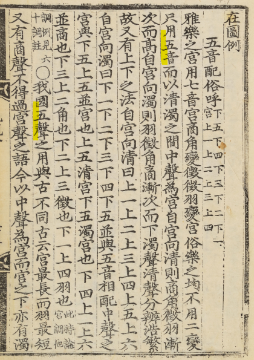 在圖例
五音配俗呼 下五下四下三下二下一 宮上一上二上三上四
雅樂之宮用七音宮商角變徵徵羽變宮俗樂之均不用二變
只用五音而以清濁之間中聲為宮自宮向清則商角徵羽漸
次而高自宮向濁則羽徵角商漸次而下濁聲清聲分辨浩繁
故又有上下之法自宮向清曰上一上二上三上四上五上六
自宮向濁曰下一下二下三下四下五並與五音相配中聲之
宮與下五上五並宮也上五清宮下五濁宮也下四上一上六
並商也下三上二角也下二上三徵也下一上四羽也 此特論宮調他
調例見六十調註 ○我國五聲之用與古不同古云宮最長而羽最短
又有商聲不得過宮聲之語今以中聲為宮而宮之下亦有濁